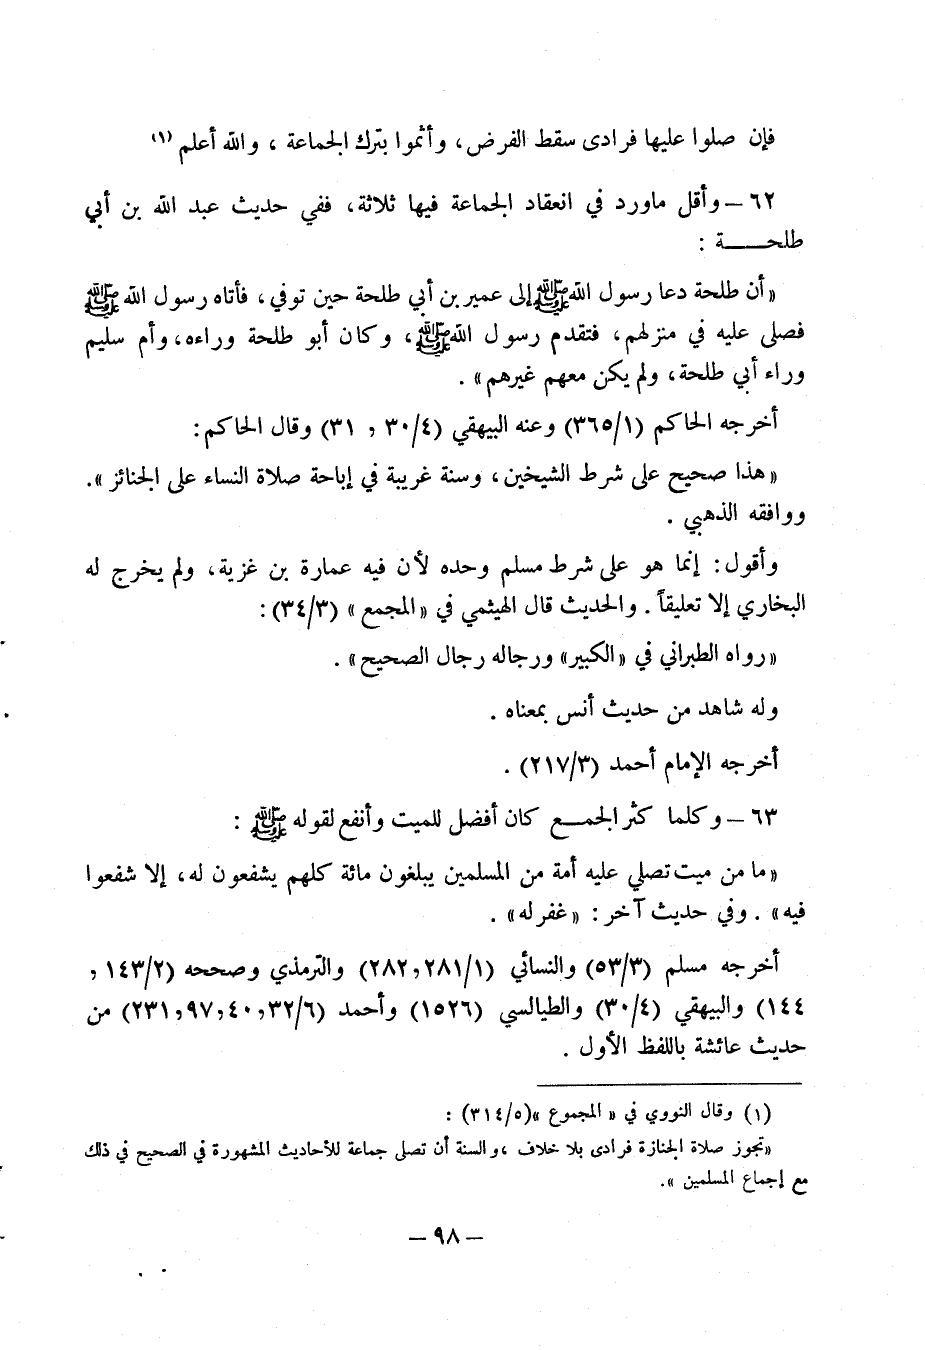 فإن صلوا عليها فرادى سقط الفرض، وأثموا بترك الجماعة ، والله أعلم (١)
٦٢ – وأقل ماورد في انعقاد الجماعة فيها ثلاثة، ففي حديث عبد الله بن أبي
طلحـــــة :
«أن طلحة دعا رسول الله ﷺ إلى عمير بن أبي طلحة حين توفي، فأتاه رسول الله ﷺ
فصلى عليه في منزلهم، فتقدم رسول الله ﷺ، وكان أبو طلحة وراءه، وأم سليم
وراء أبي طلحة، ولم يكن معهم غيرهم» .
أخرجه الحاكم (٣٦٥/١) وعنه البيهقي (٣٠/٤ , ٣١) وقال الحاكم:
«هذا صحيح على شرط الشيخين، وسنة غريبة في إباحة صلاة النساء على الجنائز».
ووافقه الذهبي .
وأقول: إنما هو على شرط مسلم وحده لأن فيه عمارة بن غزية، ولم يخرج له
البخاري إلا تعليقاً . والحديث قال الهيثمي في «المجمع» (٣٤/٣):
«رواه الطبراني في «الكبير» ورجاله رجال الصحيح» .
وله شاهد من حديث أنس بمعناه .
أخرجه الإمام أحمد (٢١٧/٣) .
٦٣ – وكلما كثر الجمـــع كان أفضل للميت وأنفع لقوله ﷺ :
«ما من ميت تصلي عليه أمة من المسلمين يبلغون مائة كلهم يشفعون له، إلا شفعوا
فيه» . وفي حديث آخر: «غفر له» .
أخرجه مسلم (٥٣/٣) والنسائي (٢٨١/١,٢٨٢) والترمذي وصححه (١٤٣/٢ ,
١٤٤) والبيهقي (٣٠/٤) والطيالسي (١٥٢٦) وأحمد (٣٢/٦,٤٠,٩٧,٢٣١) من
حديث عائشة باللفظ الأول .
(١) وقال النووي في « المجموع »(٣١٤/٥) :
«تجوز صلاة الجنازة فرادى بلا خلاف ،والسنة أن تصلى جماعة للأحاديث المشهورة في الصحيح في ذلك
مع إجماع المسلمين ».
– ٩٨ –